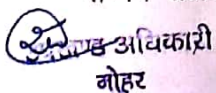 अधिकारी
मोहर